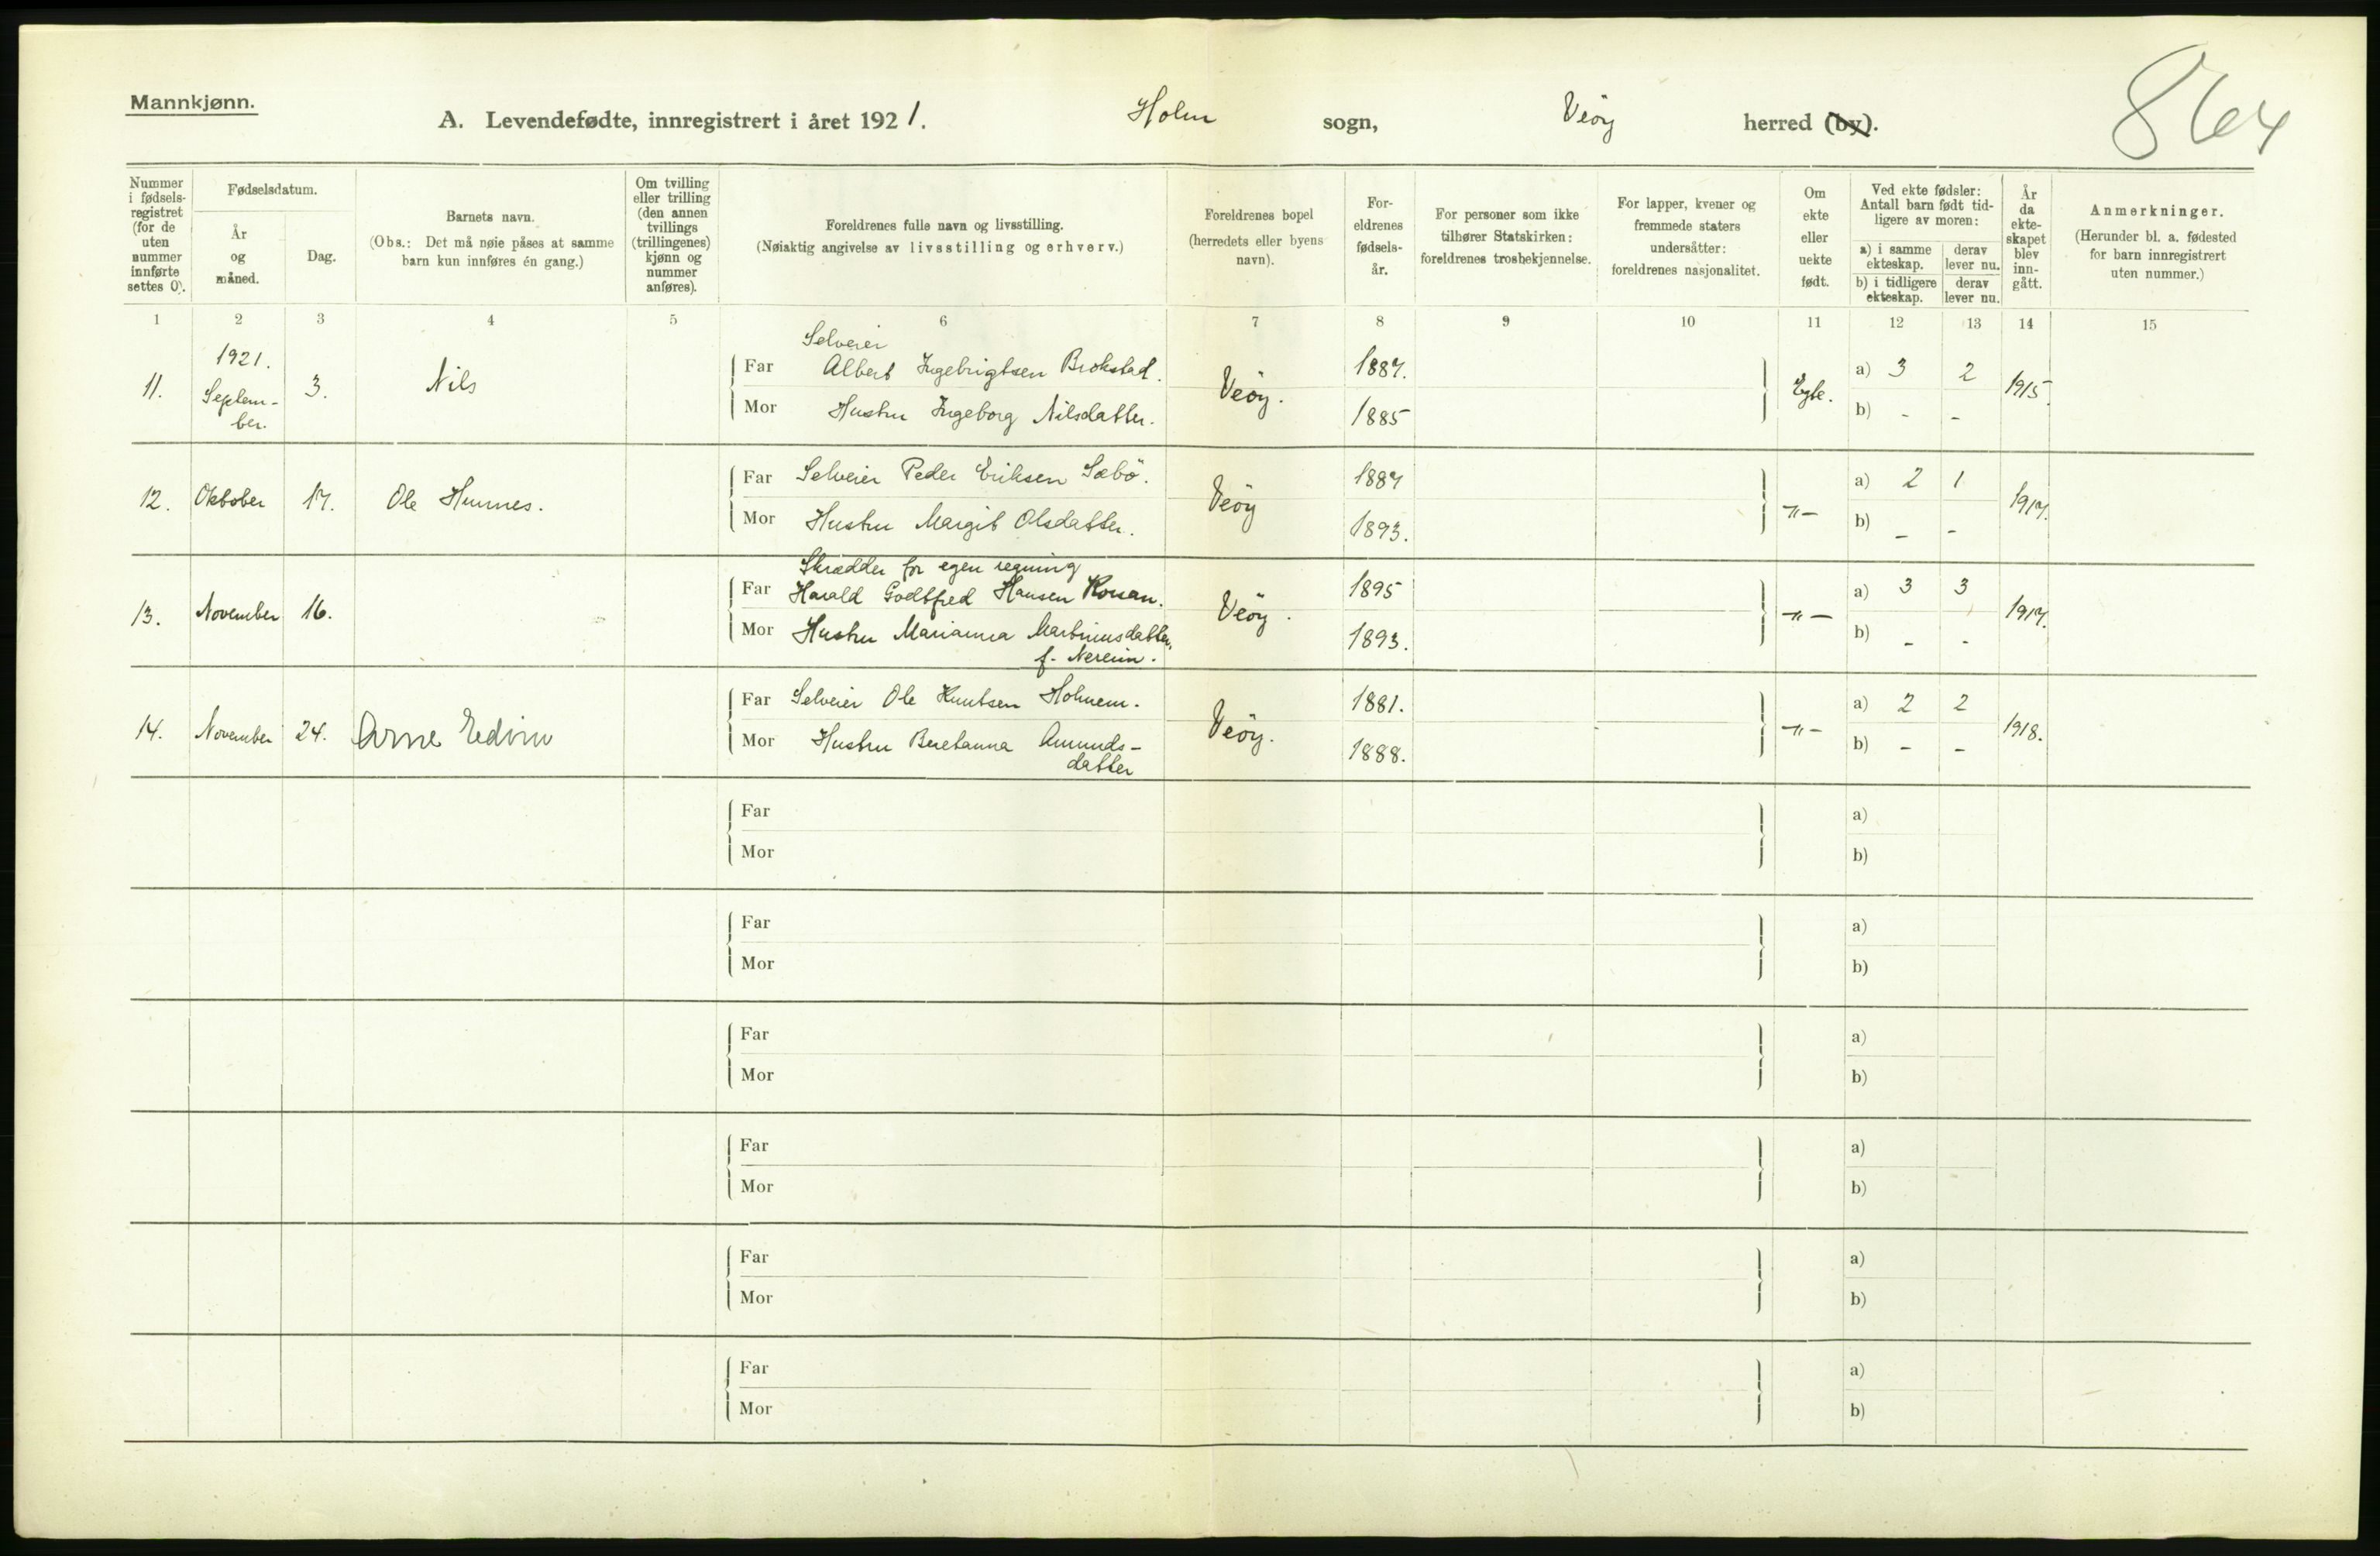 Mannkjønn.
A. Levendefødte, innregistrert i året 1921. Holm sogn, Veöy herred (by).
864
Nummer i fødsels-registret (for de uten nummer innførte settes 0).
Fødselsdatum.
År og måned.
Dag.
Barnets navn.
(Obs.: Det må nøie påses at samme barn kun innføres én gang.)
Om tvilling eller trilling (den annen tvillings (trillingenes) kjønn og nummer anføres).
Foreldrenes fulle navn og livsstilling.
(Nøiaktig angivelse av livsstilling og erhverv.)
Foreldrenes bopel (herredets eller byens navn).
For-eldrenes fødsels-år.
For personer som ikke tilhører Statskirken: foreldrenes trosbekjennelse.
For lapper, kvener og fremmede staters undersåtter: foreldrenes nasjonalitet.
Om ekte eller uekte født.
Ved ekte fødsler: Antall barn født tid-ligere av moren:
a) i samme ekteskap.
derav lever nu.
b) i tidligere ekteskap.
derav lever nu.
År da ekte-skapet blev inn-gått.
Anmerkninger.
(Herunder bl. a. fødested for barn innregistrert uten nummer.)
1 2 3 4 5 6 7 8 9 10 11 12 13 14 15
11. 1921. Septem-ber. 3. Nils
Selveier
Far Albert Ingebrigtsen Brokstad. Veöy. 1887. Egte. a) 3 2 1915.
Mor Hustru Ingeborg Nilsdatter. 1885 b) - -
12. Oktober 17. Ole Hunnes.
Far Selveier Peder Eriksen Sæbö. Veöy 1887 -"- a) 2 1 1917.
Mor Hustru Margit Olsdatter. 1893. b) - -
13. November 16.
Skrædder for egen regning
Far Harald Godtfred Hansen Rouan. Veöy. 1895 -"- a) 3 3 1917.
Mor Hustru Marianna Martinusdatter, 1893. b) - -
f. Nereim.
14. November 24. Arne Edvin
Far Selveier Ole Knutsen Holmem. Veöy. 1881. -"- a) 2 2 1918.
Mor Hustru Beretanna Amunds- 1888. b) - -
datter
Far a)
Mor b)
Far a)
Mor b)
Far a)
Mor b)
Far a)
Mor b)
Far a)
Mor b)
Far a)
Mor b)